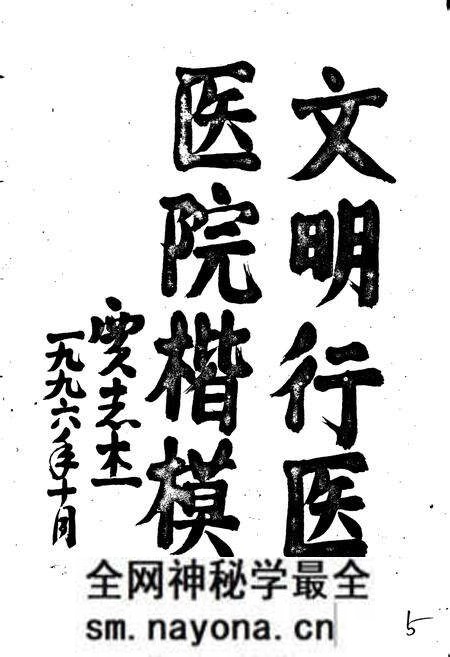 文明行医
医院楷模
贾志杰
一九九六年十月
全网神秘学最全
sm.nayona.cn
5